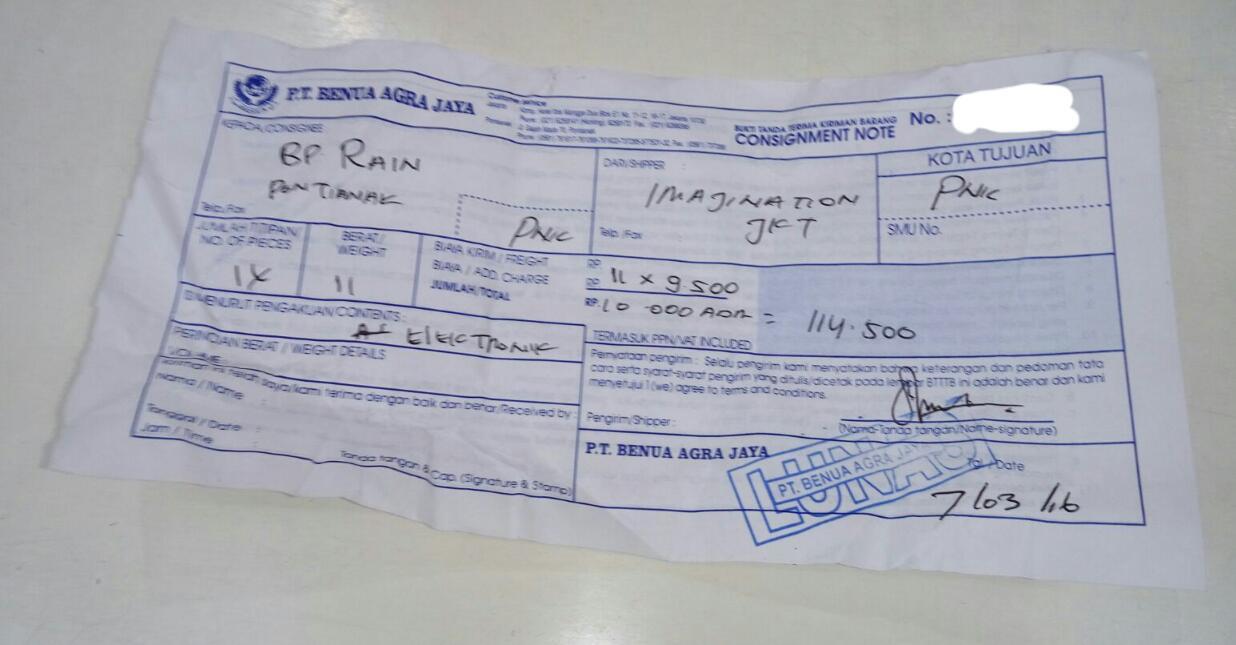 P.T. BENUA AGRA JAYA
Customer service
BUKTI TANDA TERIMA KIRIMAN BARANG
CONSIGNMENT NOTE
No. :
KEPADA/CONSIGNEE
BP RAIN
PONTIANAK
Telp./Fax
PNK
DARI/SHIPPER :
IMAJINATION
JKT
Telp./Fax :
KOTA TUJUAN
PNK
SMU No.
JUMLAH TITIPAN/
NO. OF PIECES
1X
BERAT/
WEIGHT
11
BIAYA KIRIM / FREIGHT
BIAYA / ADD. CHARGE
JUMLAH/TOTAL
RP
RP 11 x 9.500
RP. 10.000 ADM = 114.500
TERMASUK PPN/VAT INCLUDED
ISI MENURUT PENGAKUAN/CONTENTS :
ELEKTRONIK
PERINCIAN BERAT / WEIGHT DETAILS
VOLUME :
Kiriman ini telah saya/kami terima dengan baik dan benar/Received by :
Nama / Name :
Tanggal / Date :
Jam / Time :
Tanda tangan & Cap. (Signature & Stamp)
Pernyataan pengirim : Selaku pengirim kami menyatakan bahwa keterangan dan pedoman tata
cara serta syarat-syarat pengirim yang ditulis/dicetak pada lembar BTTTB ini adalah benar dan kami
menyetujui I (we) agree to terms and conditions.
Pengirim/Shipper :
(Nama-Tanda tangan/Name-signature)
P.T. BENUA AGRA JAYA
LUNAS
PT. BENUA AGRA JAYA
Tgl. /Date
7/03/16